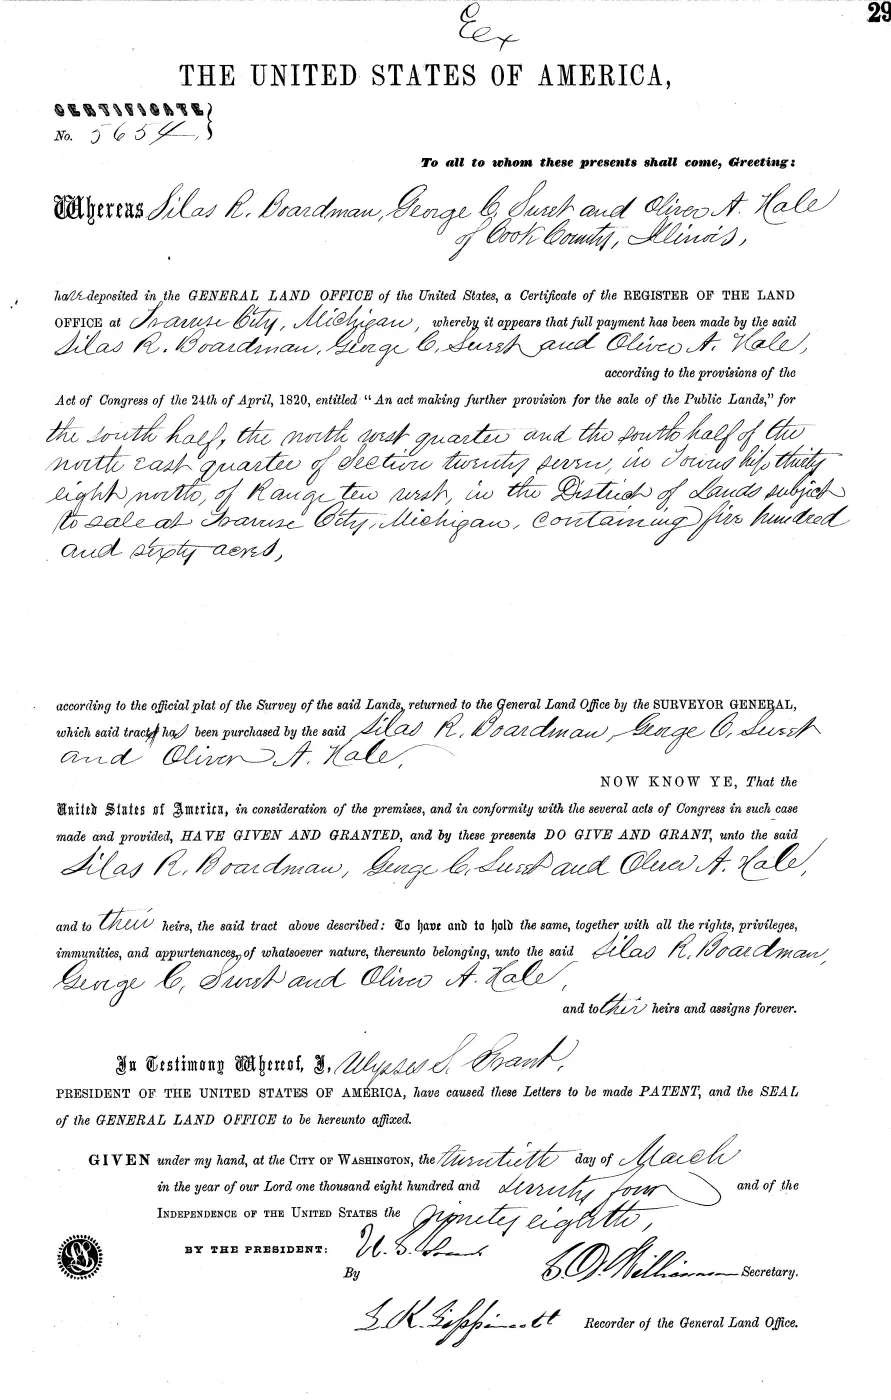 29
Ex
THE UNITED STATES OF AMERICA,
CERTIFICATE
No. 5654,
To all to whom these presents shall come, Greeting:
Whereas Silas R. Boardman, George C. Sweet and Oliver A. Hale
of Cook County, Illinois,
have deposited in the GENERAL LAND OFFICE of the United States, a Certificate of the REGISTER OF THE LAND
OFFICE at Traverse City, Michigan, whereby it appears that full payment has been made by the said
Silas R. Boardman, George C. Sweet and Oliver A. Hale,
according to the provisions of the
Act of Congress of the 24th of April, 1820, entitled "An act making further provision for the sale of the Public Lands," for
the south half, the north west quarter and the south half of the
north east quarter of Section twenty seven, in Township thirty
eight north, of Range ten west, in the District of Lands subject
to sale at Traverse City, Michigan, containing five hundred
and sixty acres,
according to the official plat of the Survey of the said Lands, returned to the General Land Office by the SURVEYOR GENERAL,
which said tract has been purchased by the said Silas R. Boardman, George C. Sweet
and Oliver A. Hale,
NOW KNOW YE, That the
United States of America, in consideration of the premises, and in conformity with the several acts of Congress in such case
made and provided, HAVE GIVEN AND GRANTED, and by these presents DO GIVE AND GRANT, unto the said
Silas R. Boardman, George C. Sweet and Oliver A. Hale,
and to their heirs, the said tract above described: To have and to hold the same, together with all the rights, privileges,
immunities, and appurtenances, of whatsoever nature, thereunto belonging, unto the said Silas R. Boardman,
George C. Sweet and Oliver A. Hale,
and to their heirs and assigns forever.
In Testimony Whereof, I, Ulysses S. Grant,
PRESIDENT OF THE UNITED STATES OF AMERICA, have caused these Letters to be made PATENT, and the SEAL
of the GENERAL LAND OFFICE to be hereunto affixed.
GIVEN under my hand, at the CITY OF WASHINGTON, the twentieth day of March
in the year of our Lord one thousand eight hundred and seventy four and of the
INDEPENDENCE OF THE UNITED STATES the ninety eighth,
BY THE PRESIDENT: U. S. Grant
By S. D. Williamson Secretary.
L. K. Lippincott Recorder of the General Land Office.